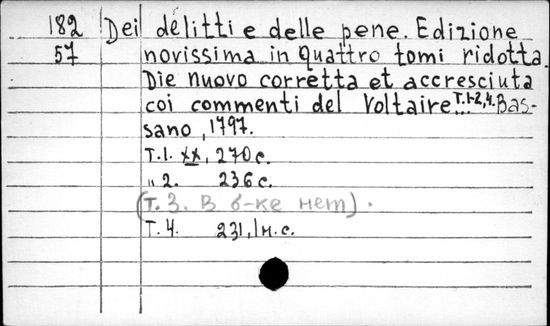 182 Dei délitti e delle pene. Edizione
57 novissima in quattro tomi ridotta.
Die nuovo corretta et accresciuta
coi commenti del Voltaire T.1-2,4. Bas-
sano, 1797.
T.1. XX, 270 c.
" 2. 236 c.
(Т. 3. В б-ке нет).
T. 4. 231, 1 н. с.